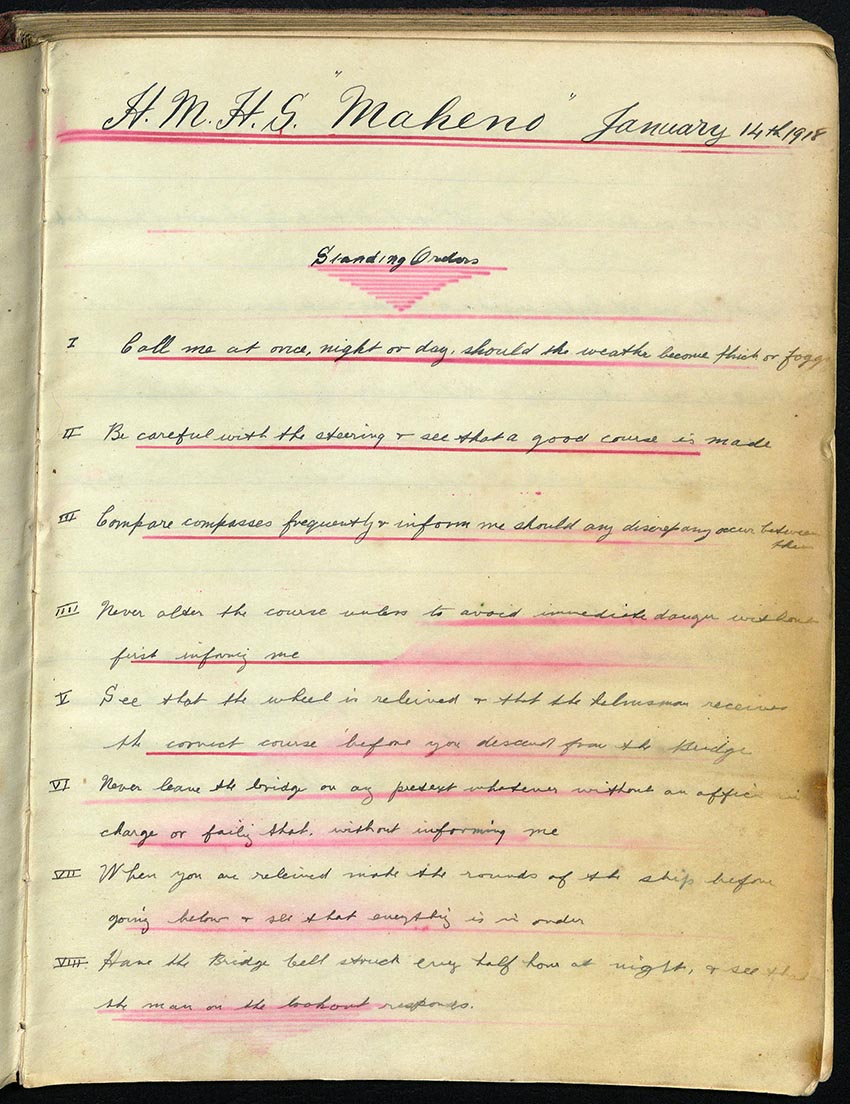 H.M.H.S. "Maheno" January 14th 1918
Standing Orders
I Call me at once, night or day, should the weathe become thick or foggy
II Be careful with the steering & see that a good course is made
III Compare compasses frequently & inform me should any discrepany occur between
them
IIII Never alter the course unless to avoid immediate danger without
first informing me
V See that the wheel is relieved & that the helmsman receives
the correct course before you descend from the Bridge
VI Never leave the bridge on any pretext whatever without an officer in
charge or failing that, without informing me
VII When you are relieved make the rounds of the ship before
going below & see that everything is in order
VIII. Have the Bridge bell struck every half hour at night, & see that
the man on the lookout responds.